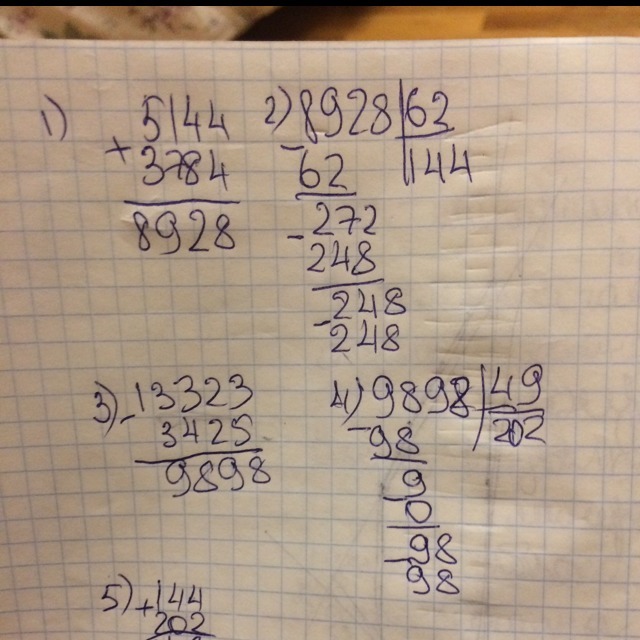 1) 5144
+ 3784
8928
2) 8928 | 62
- 62 | 144
- 272
248
- 248
248
3) - 13323
3425
9898
4) 9898 | 49
- 98 | 202
9
- 0
- 98
98
5) + 144
202